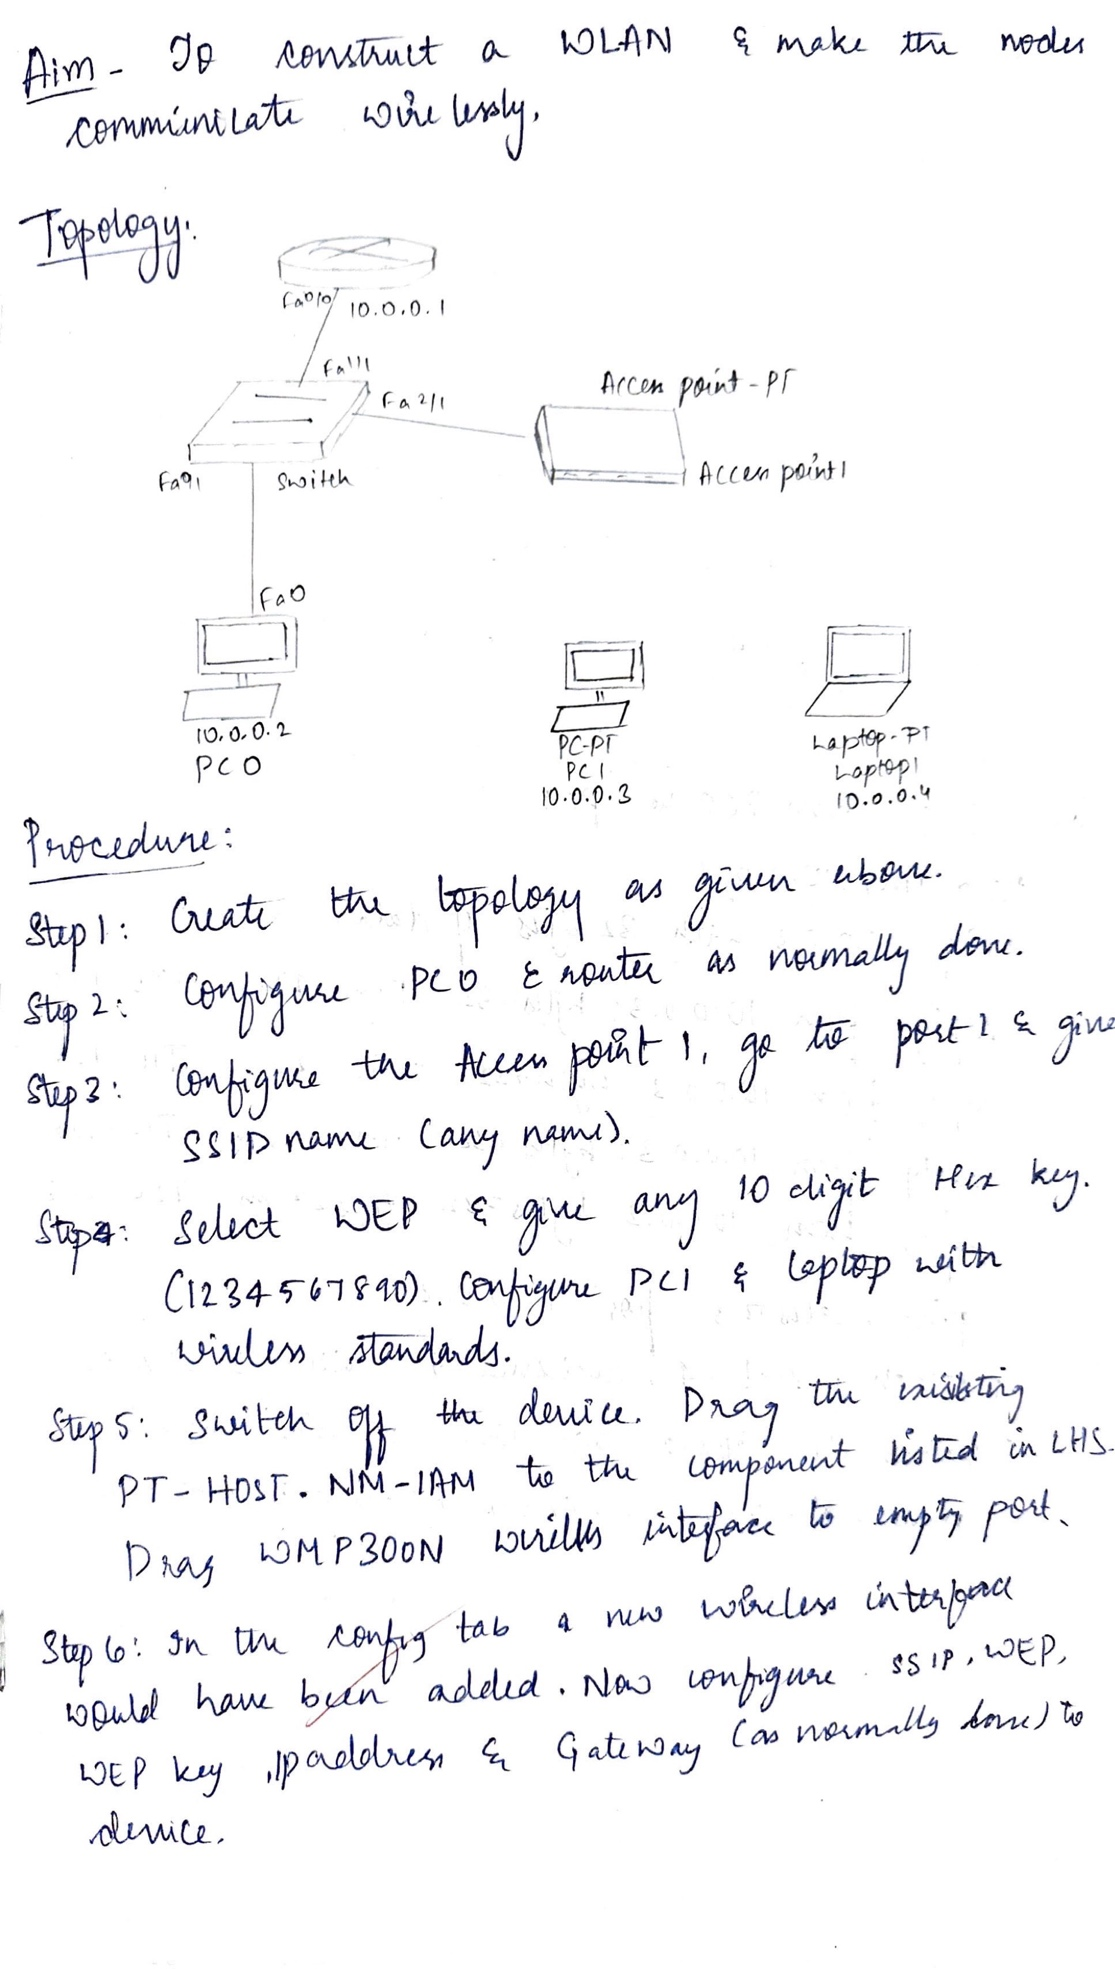 Aim - To construct a WLAN & make the nodes
communicate wirelessly.
Topology:
Fa0/0
10.0.0.1
Fa1/1
Fa2/1
Access point-PT
Access point1
Switch
Fa0
10.0.0.2
PC0
PC-PT
PC1
10.0.0.3
Laptop-PT
Laptop1
10.0.0.4
Procedure:
Step 1: Create the topology as given above.
Step 2: Configure PC0 & router as normally done.
Step 3: Configure the Access point 1, go to port 1 & give
SSID name (any name).
Step 4: Select WEP & give any 10 digit Hex key.
(1234567890). Configure PC1 & laptop with
wireless standards.
Step 5: Switch off the device. Drag the existing
PT-HOST. NM-1AM to the component listed in LHS.
Drag WMP300N interface to empty port.
Step 6: In the config tab a new wireless interface
would have been added. Now configure SSID, WEP,
WEP key, ip address & Gateway (as normally done) to
device.